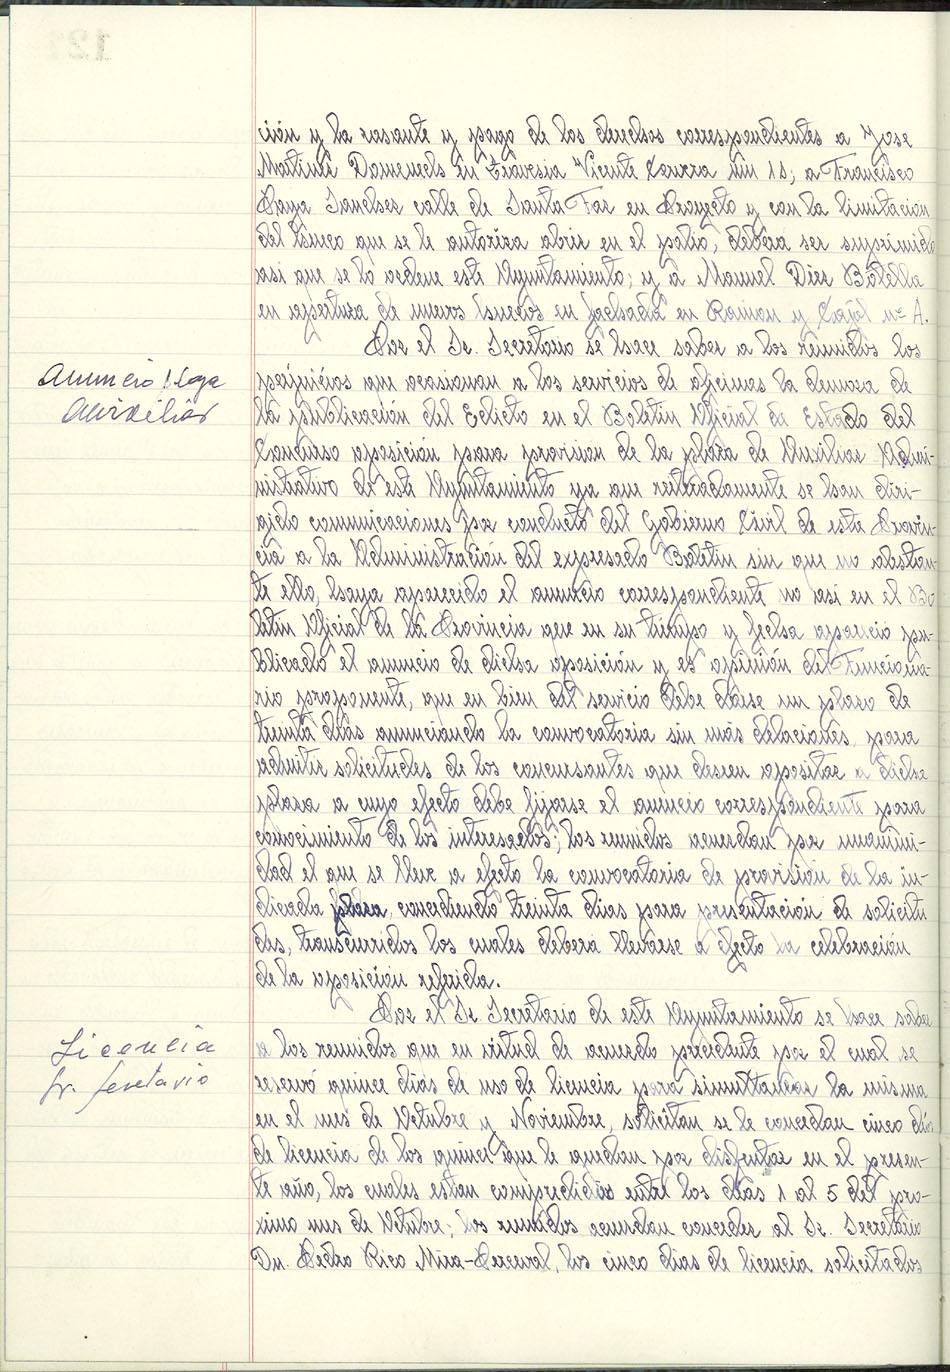 ción y la rasante y pago de los derechos correspondientes a Jose
Martinez Domenech en Travesia Vicente num 11; a Francisco
Paya Sanchez calle de Santa Faz en Proyecto y con la limitacion
del hueco que se le autoriza abrir en el patio, debera ser suprimido
asi que se lo ordene este Ayuntamiento; y a Manuel Diez Botella
en apertura de nuevos huecos en fachada en Ramon y Cajal nº A.
Por el Sr. Secretario se hace saber a los reunidos los
Anuncio plaza
Auxiliar
perjuicios que ocasionan a los servicios de oficinas la demora de
la publicación del Edicto en el Boletin Oficial de Estado del
Concurso oposición para provision de la plaza de Auxiliar Admi-
nistrativo de este Ayuntamiento ya que reiteradamente se han diri-
gido comunicaciones por conducto del Gobierno Civil de esta Provin-
cia a la Administración del expresado Boletin sin que no obstan-
te ello, haya aparecido el anuncio correspondiente no asi en el Bo
letin Oficial de la Provincia que en su tiempo y fecha aparecio pu-
blicado el anuncio de dicha oposición y es opinión del Funciona-
rio proponente, que en bien del servicio debe darse un plazo de
treinta dias anunciando la convocatoria sin más dilaciones, para
admitir solicitudes de los concursantes que deseen opositar a dicha
plaza a cuyo efecto debe fijarse el anuncio correspondiente para
conocimiento de los interesados; los reunidos acuerdan por unanimi-
dad el que se lleve a efecto la convocatoria de provisión de la in-
dicada plaza, concediendo treinta dias para presentación de solicitu
des, transcurridos los cuales debera llevarse a efecto la celebración
de la oposición referida.
Por el Sr. Secretario de este Ayuntamiento se hace saber
Licencia
Sr. Secretario
a los reunidos que en virtud de acuerdo precedente por el cual se
reservó quince dias de uso de licencia para simultanear la misma
en el mes de Octubre y Noviembre, solicitan se le concedan cinco dias
de licencia de los quince que le quedan por disfrutar en el presen-
te año, los cuales estan comprendidos entre los dias 1 al 5 del pro-
ximo mes de Octubre; los reunidos acuerdan conceder al Sr. Secretario
Dn. Pedro Rico Mira-Perceval, los cinco dias de licencia solicitados